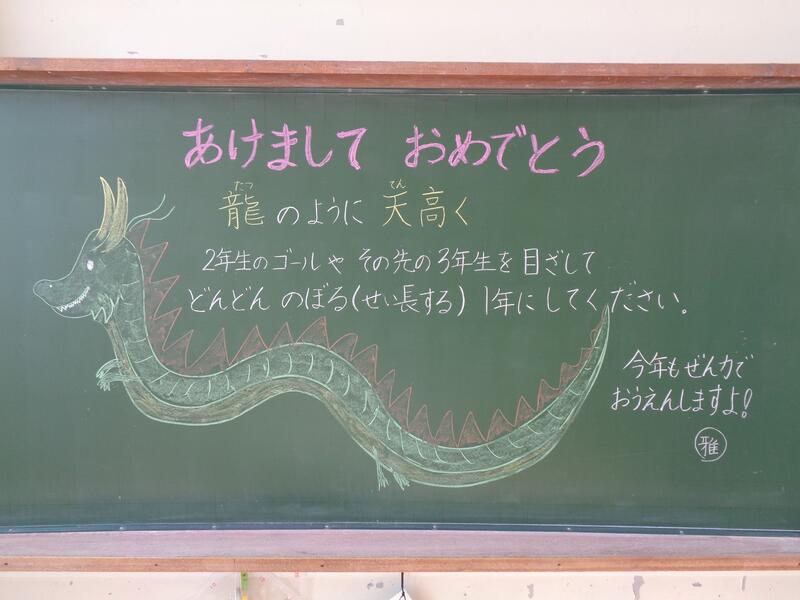 あけまして おめでとう
たつ てん
龍のように 天高く
2年生のゴールや その先の3年生を目ざして
どんどん のぼる(せい長する) 1年にしてください。
今年もぜん力で
おうえんしますよ!
雅